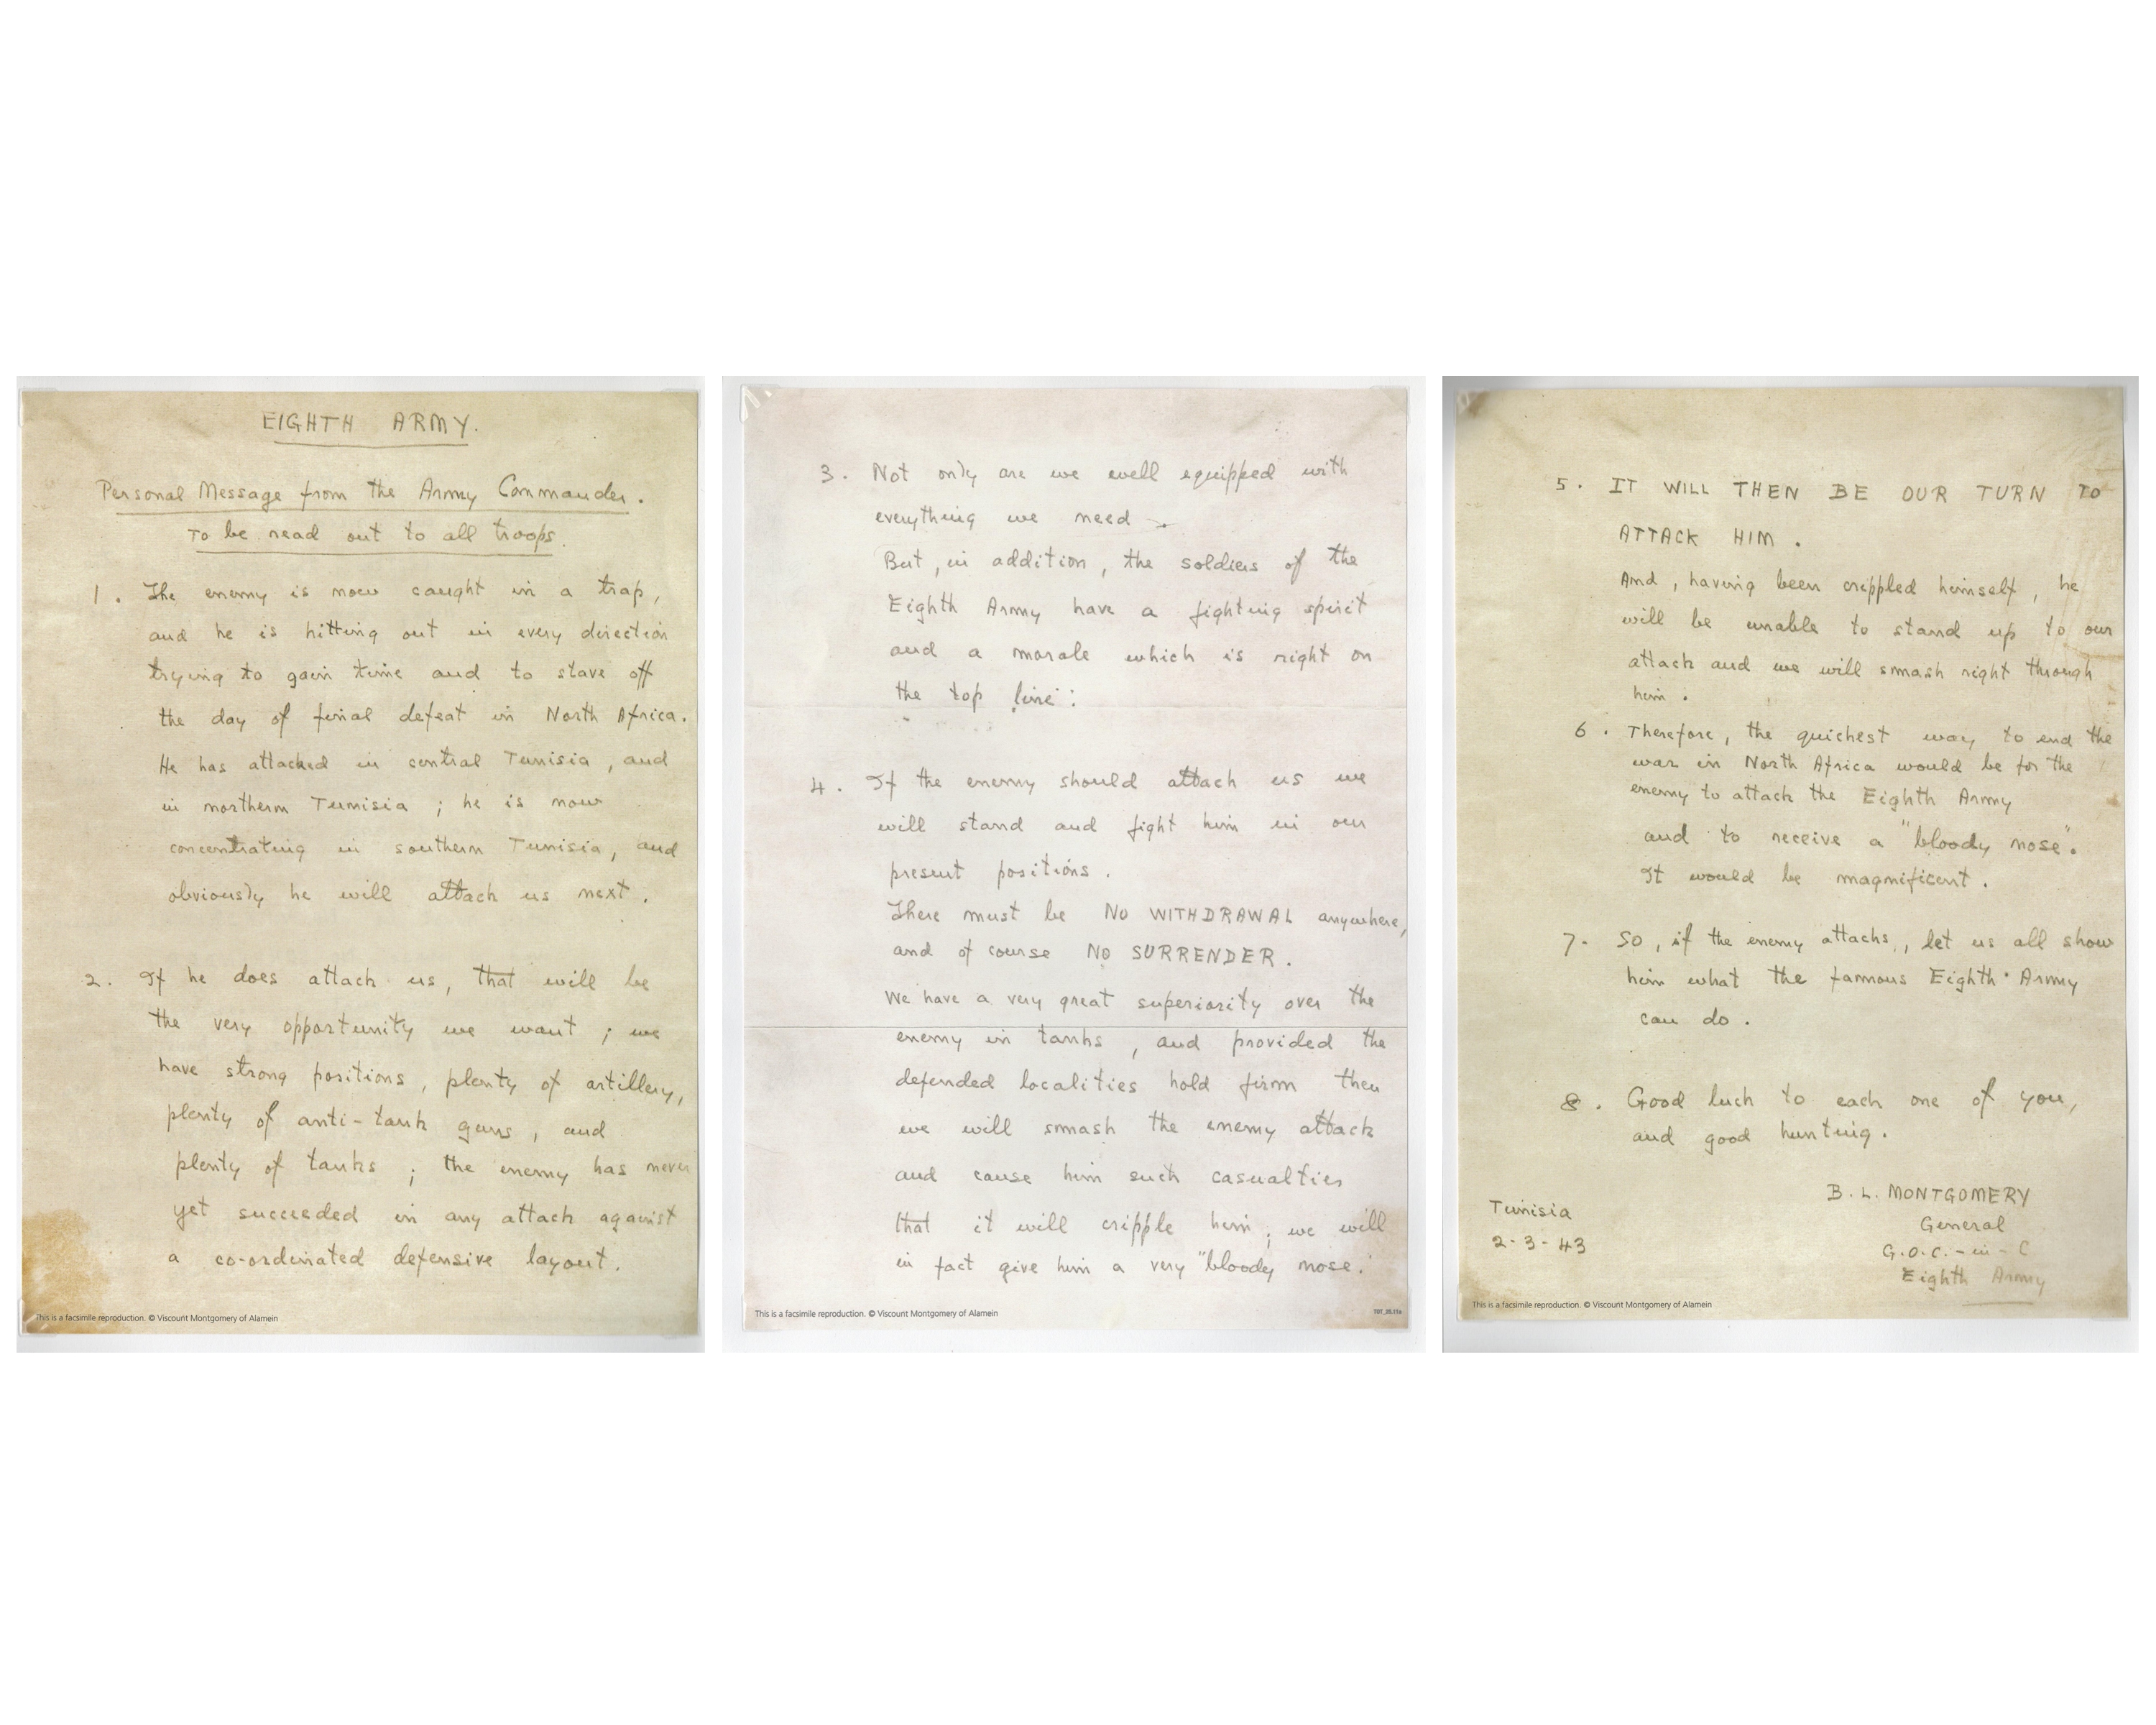 EIGHTH ARMY.
Personal Message from the Army Commander.
To be read out to all troops.
1. The enemy is now caught in a trap,
and he is hitting out in every direction
trying to gain time and to stave off
the day of final defeat in North Africa.
He has attacked in central Tunisia, and
in northern Tunisia; he is now
concentrating in southern Tunisia, and
obviously he will attack us next.
2. If he does attack us, that will be
the very opportunity we want; we
have strong positions, plenty of artillery,
plenty of anti-tank guns, and
plenty of tanks; the enemy has never
yet succeeded in any attack against
a co-ordinated defensive layout.
This is a facsimile reproduction. © Viscount Montgomery of Alamein
3. Not only are we well equipped with
everything we need.
But, in addition, the soldiers of the
Eighth Army have a fighting spirit
and a morale which is right on
the top line:
4. If the enemy should attack us we
will stand and fight him in our
present positions.
There must be NO WITHDRAWAL anywhere,
and of course NO SURRENDER.
We have a very great superiority over the
enemy in tanks, and provided the
defended localities hold firm then
we will smash the enemy attack
and cause him such casualties
that it will cripple him; we will
in fact give him a very "bloody nose."
This is a facsimile reproduction. © Viscount Montgomery of Alamein
5. IT WILL THEN BE OUR TURN TO
ATTACK HIM.
And, having been crippled himself, he
will be unable to stand up to our
attack and we will smash right through
him.
6. Therefore, the quickest way to end the
war in North Africa would be for the
enemy to attack the Eighth Army
and to receive a "bloody nose".
It would be magnificent.
7. So, if the enemy attacks, let us all show
him what the famous Eighth Army
can do.
8. Good luck to each one of you,
and good hunting.
B. L. MONTGOMERY
General
G.O.C.-in-C
Eighth Army
Tunisia
2-3-43
This is a facsimile reproduction. © Viscount Montgomery of Alamein